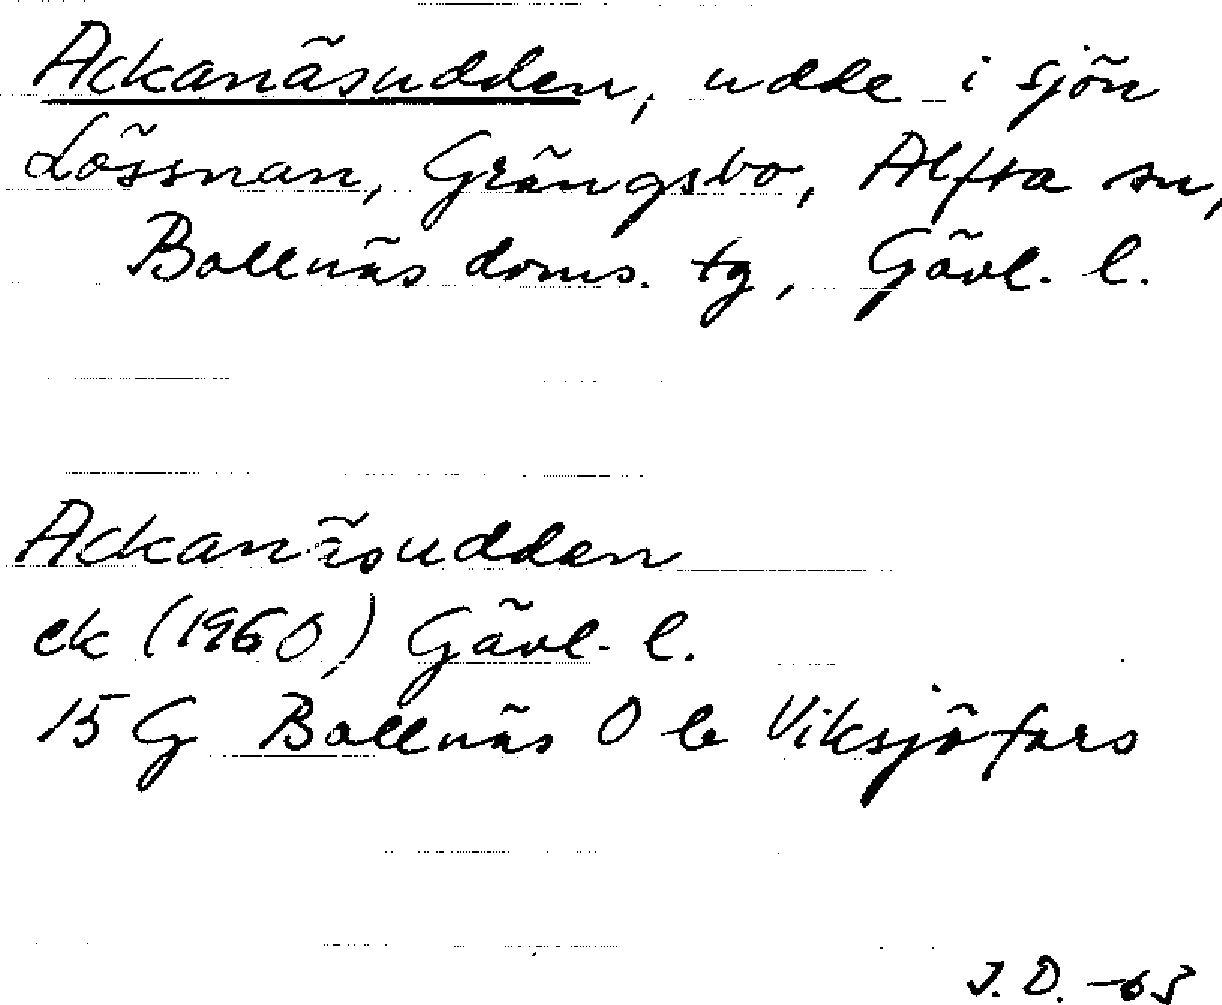 Ackanäsudden, udde i sjön
Lössnan, Grängsbo, Alfta sn,
Bollnäs doms. tg, Gävl. l.
Ackanäsudden
ek (1960) Gävl. l.
15 G Bollnäs O b Viksjöfors
J. D. -65